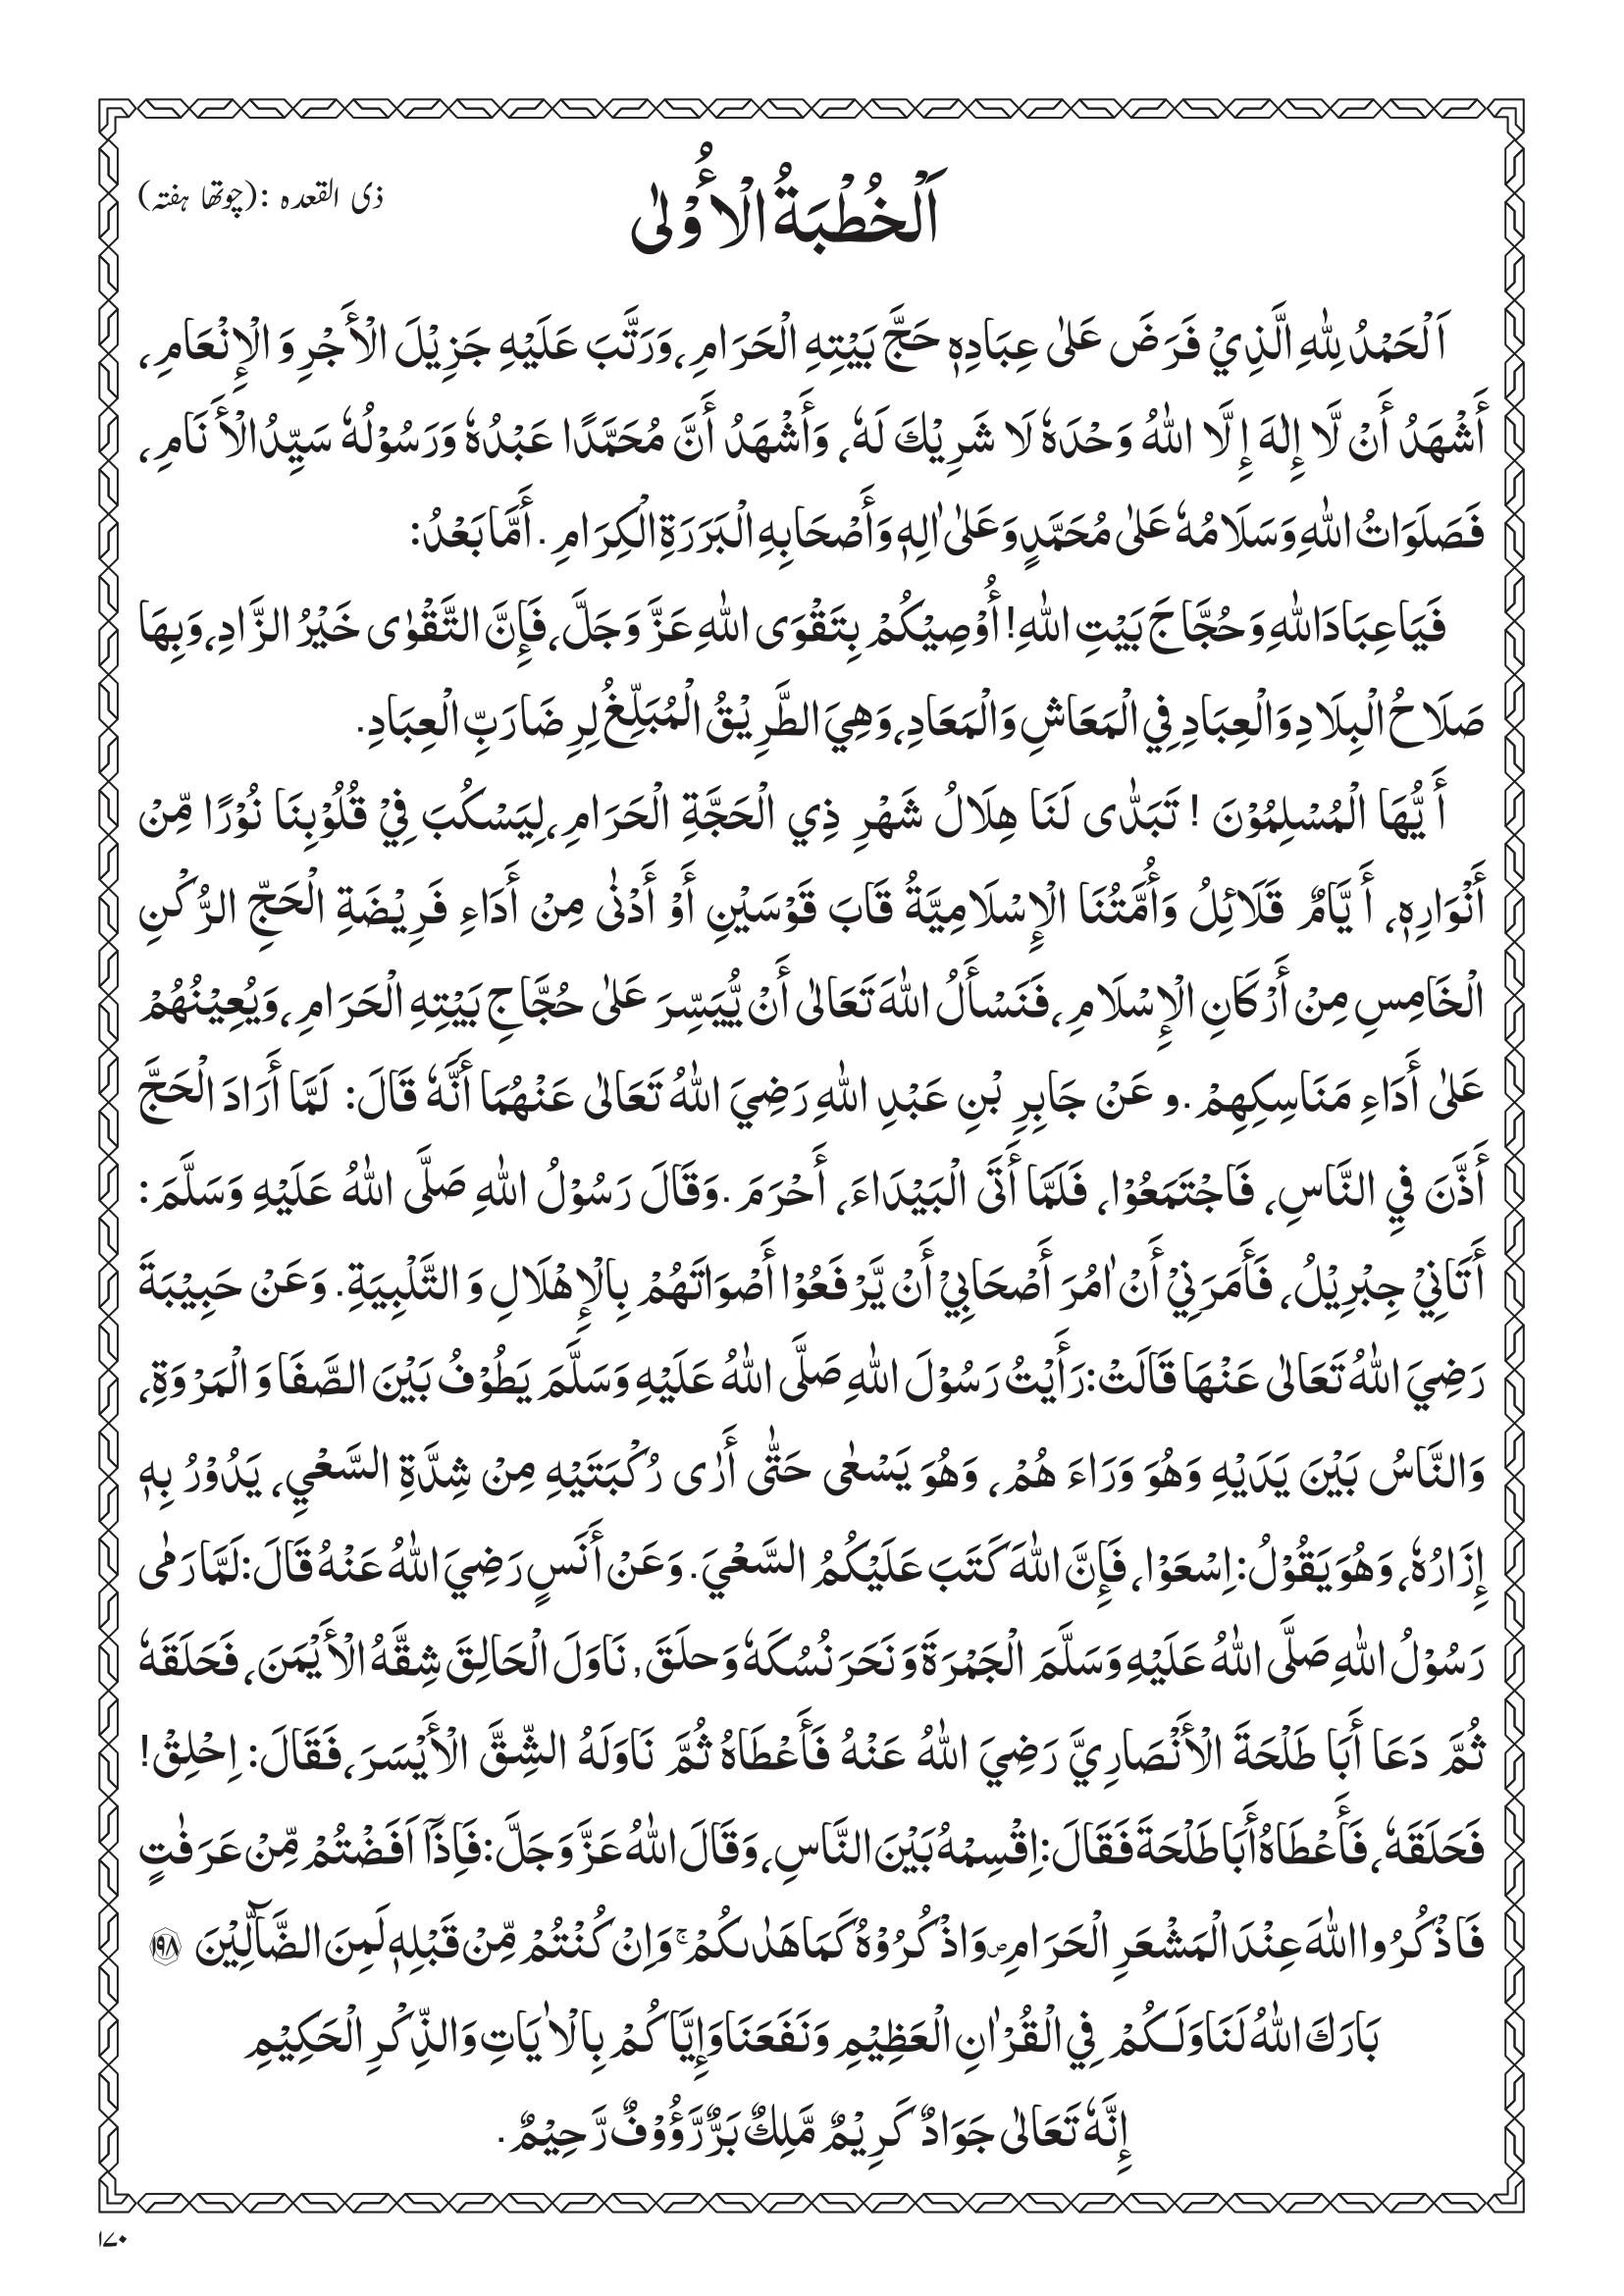 ذی القعدہ :(چوتھا ہفتہ)
اَلْخُطْبَةُ الْأُوْلٰى
اَلْحَمْدُ لِلّٰهِ الَّذِيْ فَرَضَ عَلٰى عِبَادِهٖ حَجَّ بَيْتِهِ الْحَرَامِ، وَرَتَّبَ عَلَيْهِ جَزِيْلَ الْأَجْرِ وَ الْإِنْعَامِ،
أَشْهَدُ أَنْ لَّا إِلٰهَ إِلَّا اللّٰهُ وَحْدَهٗ لَا شَرِيْكَ لَهٗ، وَأَشْهَدُ أَنَّ مُحَمَّدًا عَبْدُهٗ وَرَسُوْلُهٗ سَيِّدُ الْأَنَامِ،
فَصَلَوَاتُ اللّٰهِ وَسَلَامُهٗ عَلٰى مُحَمَّدٍ وَعَلٰى اٰلِهٖ وَأَصْحَابِهِ الْبَرَرَةِ الْكِرَامِ . أَمَّا بَعْدُ:
فَيَا عِبَادَ اللّٰهِ وَحُجَّاجَ بَيْتِ اللّٰهِ! أُوْصِيْكُمْ بِتَقْوَى اللّٰهِ عَزَّ وَجَلَّ، فَإِنَّ التَّقْوٰى خَيْرُ الزَّادِ، وَبِهَا
صَلَاحُ الْبِلَادِ وَالْعِبَادِ فِي الْمَعَاشِ وَالْمَعَادِ، وَهِيَ الطَّرِيْقُ الْمُبَلِّغُ لِرِضَا رَبِّ الْعِبَادِ.
أَيُّهَا الْمُسْلِمُوْنَ ! تَبَدّٰى لَنَا هِلَالُ شَهْرِ ذِي الْحَجَّةِ الْحَرَامِ، لِيَسْكُبَ فِيْ قُلُوْبِنَا نُوْرًا مِّنْ
أَنْوَارِهٖ، أَيَّامٌ قَلَائِلُ وَأُمَّتُنَا الْإِسْلَامِيَّةُ قَابَ قَوْسَيْنِ أَوْ أَدْنٰى مِنْ أَدَاءِ فَرِيْضَةِ الْحَجِّ الرُّكْنِ
الْخَامِسِ مِنْ أَرْكَانِ الْإِسْلَامِ، فَنَسْأَلُ اللّٰهَ تَعَالٰى أَنْ يُّيَسِّرَ عَلٰى حُجَّاجِ بَيْتِهِ الْحَرَامِ، وَيُعِيْنُهُمْ
عَلٰى أَدَاءِ مَنَاسِكِهِمْ .و عَنْ جَابِرِ بْنِ عَبْدِ اللّٰهِ رَضِيَ اللّٰهُ تَعَالٰى عَنْهُمَا أَنَّهٗ قَالَ: لَمَّا أَرَادَ الْحَجَّ
أَذَّنَ فِي النَّاسِ، فَاجْتَمَعُوْا، فَلَمَّا أَتَى الْبَيْدَاءَ، أَحْرَمَ .وَقَالَ رَسُوْلُ اللّٰهِ صَلَّى اللّٰهُ عَلَيْهِ وَسَلَّمَ:
أَتَانِيْ جِبْرِيْلُ، فَأَمَرَنِيْ أَنْ اٰمُرَ أَصْحَابِيْ أَنْ يَّرْفَعُوْا أَصْوَاتَهُمْ بِالْإِهْلَالِ وَ التَّلْبِيَةِ. وَعَنْ حَبِيْبَةَ
رَضِيَ اللّٰهُ تَعَالٰى عَنْهَا قَالَتْ:رَأَيْتُ رَسُوْلَ اللّٰهِ صَلَّى اللّٰهُ عَلَيْهِ وَسَلَّمَ يَطُوْفُ بَيْنَ الصَّفَا وَ الْمَرْوَةِ،
وَالنَّاسُ بَيْنَ يَدَيْهِ وَهُوَ وَرَاءَ هُمْ، وَهُوَ يَسْعٰى حَتّٰى أَرٰى رُكْبَتَيْهِ مِنْ شِدَّةِ السَّعْيِ، يَدُوْرُ بِهٖ
إِزَارُهٗ، وَهُوَ يَقُوْلُ:اِسْعَوْا، فَإِنَّ اللّٰهَ كَتَبَ عَلَيْكُمُ السَّعْيَ. وَعَنْ أَنَسٍ رَضِيَ اللّٰهُ عَنْهُ قَالَ:لَمَّا رَمٰى
رَسُوْلُ اللّٰهِ صَلَّى اللّٰهُ عَلَيْهِ وَسَلَّمَ الْجَمْرَةَ وَنَحَرَ نُسُكَهٗ وَحلَقَ, نَاوَلَ الْحَالِقَ شِقَّهُ الْأَيْمَنَ، فَحَلَقَهٗ
ثُمَّ دَعَا أَبَا طَلْحَةَ الْأَنْصَارِيَّ رَضِيَ اللّٰهُ عَنْهُ فَأَعْطَاهُ ثُمَّ نَاوَلَهُ الشِّقَّ الْأَيْسَرَ، فَقَالَ: اِحْلِقْ!
فَحَلَقَهٗ، فَأَعْطَاهُ أَبَا طَلْحَةَ فَقَالَ:اِقْسِمْهُ بَيْنَ النَّاسِ، وَقَالَ اللّٰهُ عَزَّ وَجَلَّ:فَاِذَآ اَفَضْتُمْ مِّنْ عَرَفٰتٍ
فَاذْكُرُوا اللّٰهَ عِنْدَ الْمَشْعَرِ الْحَرَامِ ۪ وَاذْكُرُوْهُ كَمَا هَدٰىكُمْ ۚ وَاِنْ كُنْتُمْ مِّنْ قَبْلِهٖ لَمِنَ الضَّآلِّيْنَ ۝۱۹۸
بَارَكَ اللّٰهُ لَنَا وَلَكُمْ فِي الْقُرْاٰنِ الْعَظِيْمِ وَنَفَعَنَا وَإِيَّاكُمْ بِالْاٰيَاتِ وَالذِّكْرِ الْحَكِيْمِ
إِنَّهٗ تَعَالٰى جَوَادٌ كَرِيْمٌ مَّلِكٌ بَرٌّ رَّؤُوْفٌ رَّحِيْمٌ .
۱۷۰